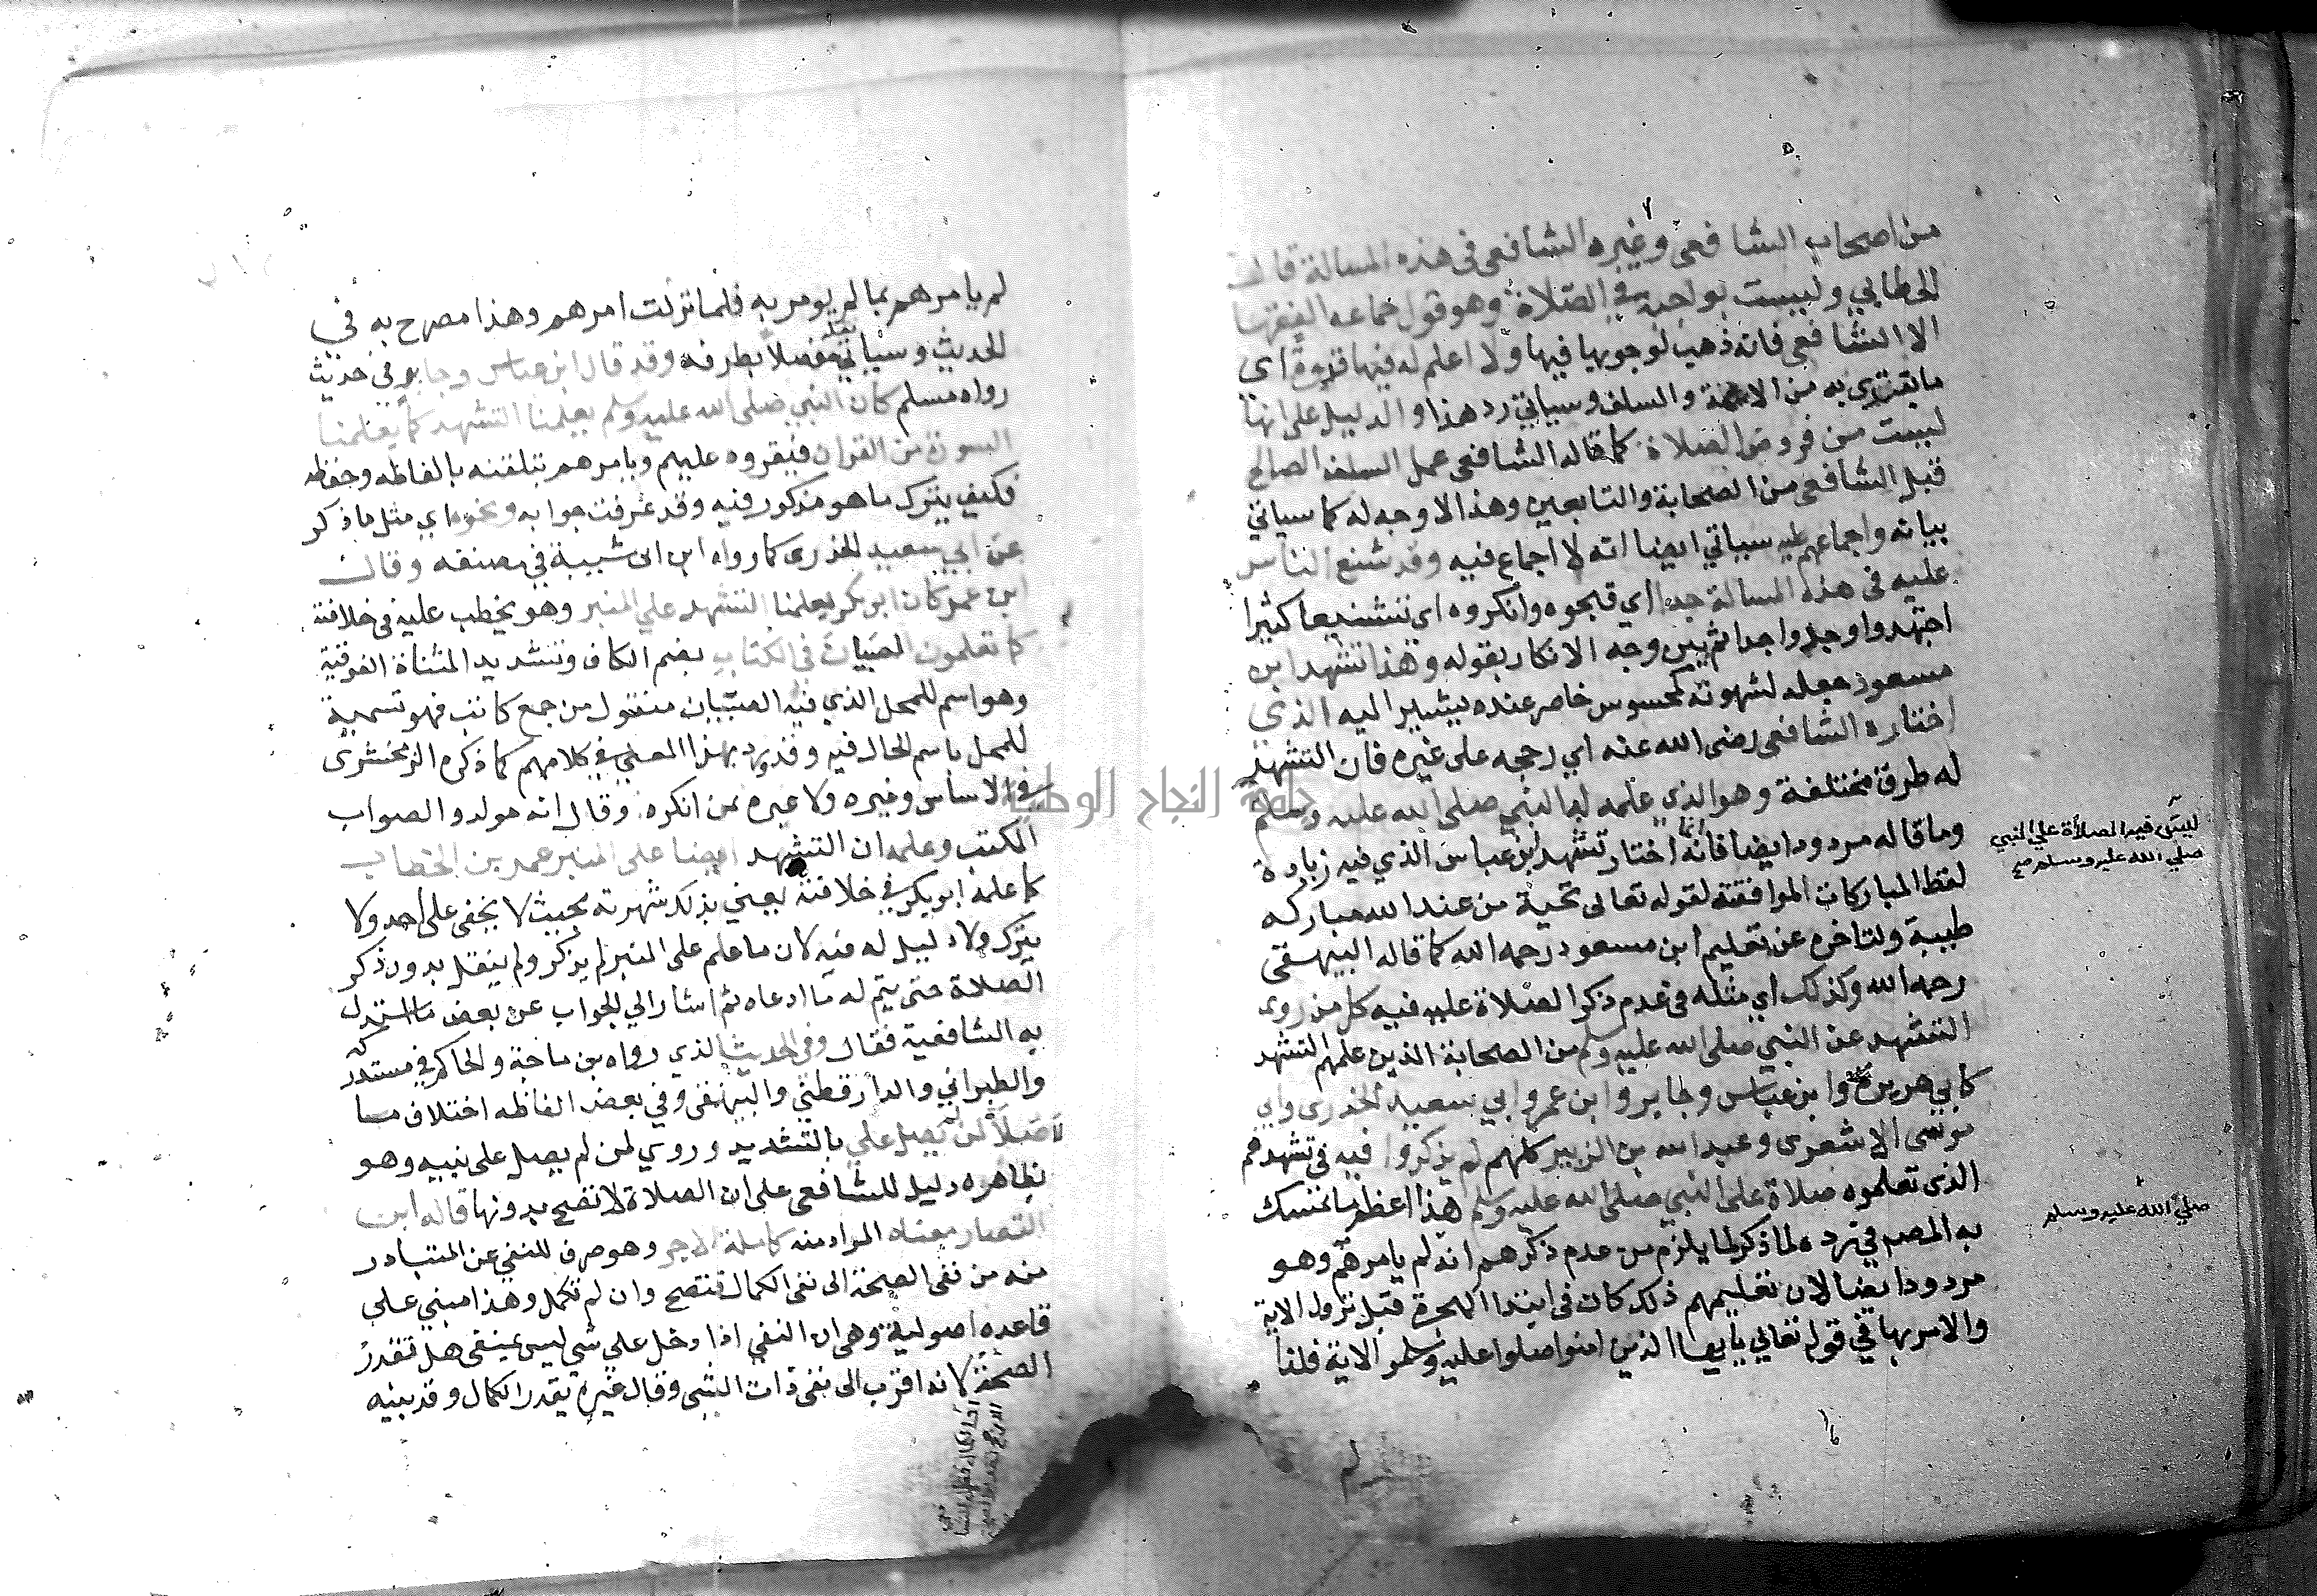 من اصحاب الشافعي وغيره الشافعي في هذه المسالة قال
الخطابي وليست بواجبة في الصلاة وهو قول جماعه الفقها
الا الشافعي فانه ذهب لوجوبها فيها ولا اعلم له فيها قدوة اي
ما يقتدي به من الائمة والسلف وسياتي رد هذا والدليل على انها
ليست من فروض الصلاة كما قاله الشافعي عمل السلف الصالح
قبل الشافعي من الصحابة والتابعين وهذا لا وجه له كما سياتي
بيانه واجماعهم عليه سياتي ايضا انه لا اجماع فيه وقد شنع الناس
عليه في هذه المسالة جدا اي قبحوه وانكروه اي تشنيعا كثيرا
اجتهدوا وجدوا جدا ثم بين وجه الانكار بقوله وهذا تشهد ابن
مسعود جعله لشهرته كمحسوس حاضر عنده يشير اليه الذي
اختاره الشافعي رضى الله عنه اي رجحه على غيره فان التشهد
له طرق مختلفة وهو الذي علمه له النبي صلى الله عليه وسلم
وما قاله مردود ايضا فانه انما اختار تشهد ابن عباس الذي فيه زيادة
لفظ المباركات الموافقة لقوله تعالى تحية من عند الله مباركه
طيبة ولتاخره عن تعليم ابن مسعود رحمه الله كما قاله البيهقى
رحمه الله وكذلك اي مثله في عدم ذكر الصلاة عليه فيه كل من روى
التشهد عن النبي صلى الله عليه وسلم من الصحابة الذين علمهم التشهد
كابي هريرة وابن عباس وجابر وابن عمر وابي سعيد الخدرى وابي
موسى الاشعرى وعبد الله بن الزبير كلهم لم يذكروا فيه في تشهدهم
الذى تعلموه صلاة على النبي صلى الله عليه وسلم هذا اعظم ما تمسك
به المصم في رده لما ذكر لما يلزم من عدم ذكرهم انه لم يامرهم وهو
مردود ايضا لان تعليمهم ذلك كان في ابتدا الهجرة قبل نزول الاية
والامر بها في قوله تعالي يا يها الذين امنوا صلوا عليه وسلموا الاية فلما
ليس فيه الصلاة علي النبي
صلي الله عليه وسلم صح
صلي الله عليه وسلم
لم
لم يامرهم بما لم يومر به فلما نزلت امرهم وهذا مصرح به في
الحديث وسياتي مفصلا بطرقه وقد قال ابن عباس وجابر في حديث
رواه مسلم كان النبي صلى الله عليه وسلم يعلمنا التشهد كما يعلمنا
السورة من القران فيقروه عليهم ويامرهم بتلقنه بالفاظه وحفظه
فكيف يترك ما هو مذكور فيه وقد عرفت جوابه ونحوه اي مثل ما ذكر
عن ابي سعيد الخدرى كما رواه ابن ابى شيبة في مصنفه وقال
ابن عمر كان ابو بكر يعلمنا التشهد علي المنبر وهو يخطب عليه في خلافته
كما تعلمون الصبيان في الكتاب بضم الكاف وتشديد المثناة الفوقية
وهو اسم للمحل الذي فيه الصبيان منقول من جمع كاتب فهو تسمية
للمحل باسم الحال فيه وقد ورد بهذا المعنى في كلامهم كما ذكره الزمخشرى
في الاساس وغيره ولا عبره بمن انكره وقال انه مولد والصواب
المكتب وعلمه ان التشهد ايضا على المنبر عمر بن الخطاب
كما علمه ابو بكر في خلافته يعني بذلك شهرته بحيث لا يخفى على احد ولا
يترك ولا دليل له فيه لان ما علم على المنبر لم يذكر ولم ينقل بدون ذكر
الصلاة حتى يتم له ما ادعاه ثم اشار الي الجواب عن بعض ما استدل
به الشافعية فقال وفي الحديث الذي رواه بن ماجة والحاكم في مستدركه
والطبراني والدارقطني والبيهقى وفي بعض الفاظه اختلاف ما
لا صلاة لمن لم يصل علي بالتشديد وروي لمن لم يصل على نبيه وهو
بظاهره دليل للشافعى على ان الصلاة لا تصح بدونها قال ابن
القصار معناه المراد منه كاملة الاجر وهو صرف للنفي عن المتبادر
منه من نفى الصحة الى نفى الكمال فتصح وان لم تكمل وهذا مبني على
قاعده اصولية وهى ان النفي اذا دخل علي شي ليس بمنفى هل تقدر
الصحة لانه اقرب الى نفى ذات الشي وقال غيره يقدر الكمال وقد بينه
جامعة النجاح الوطنية